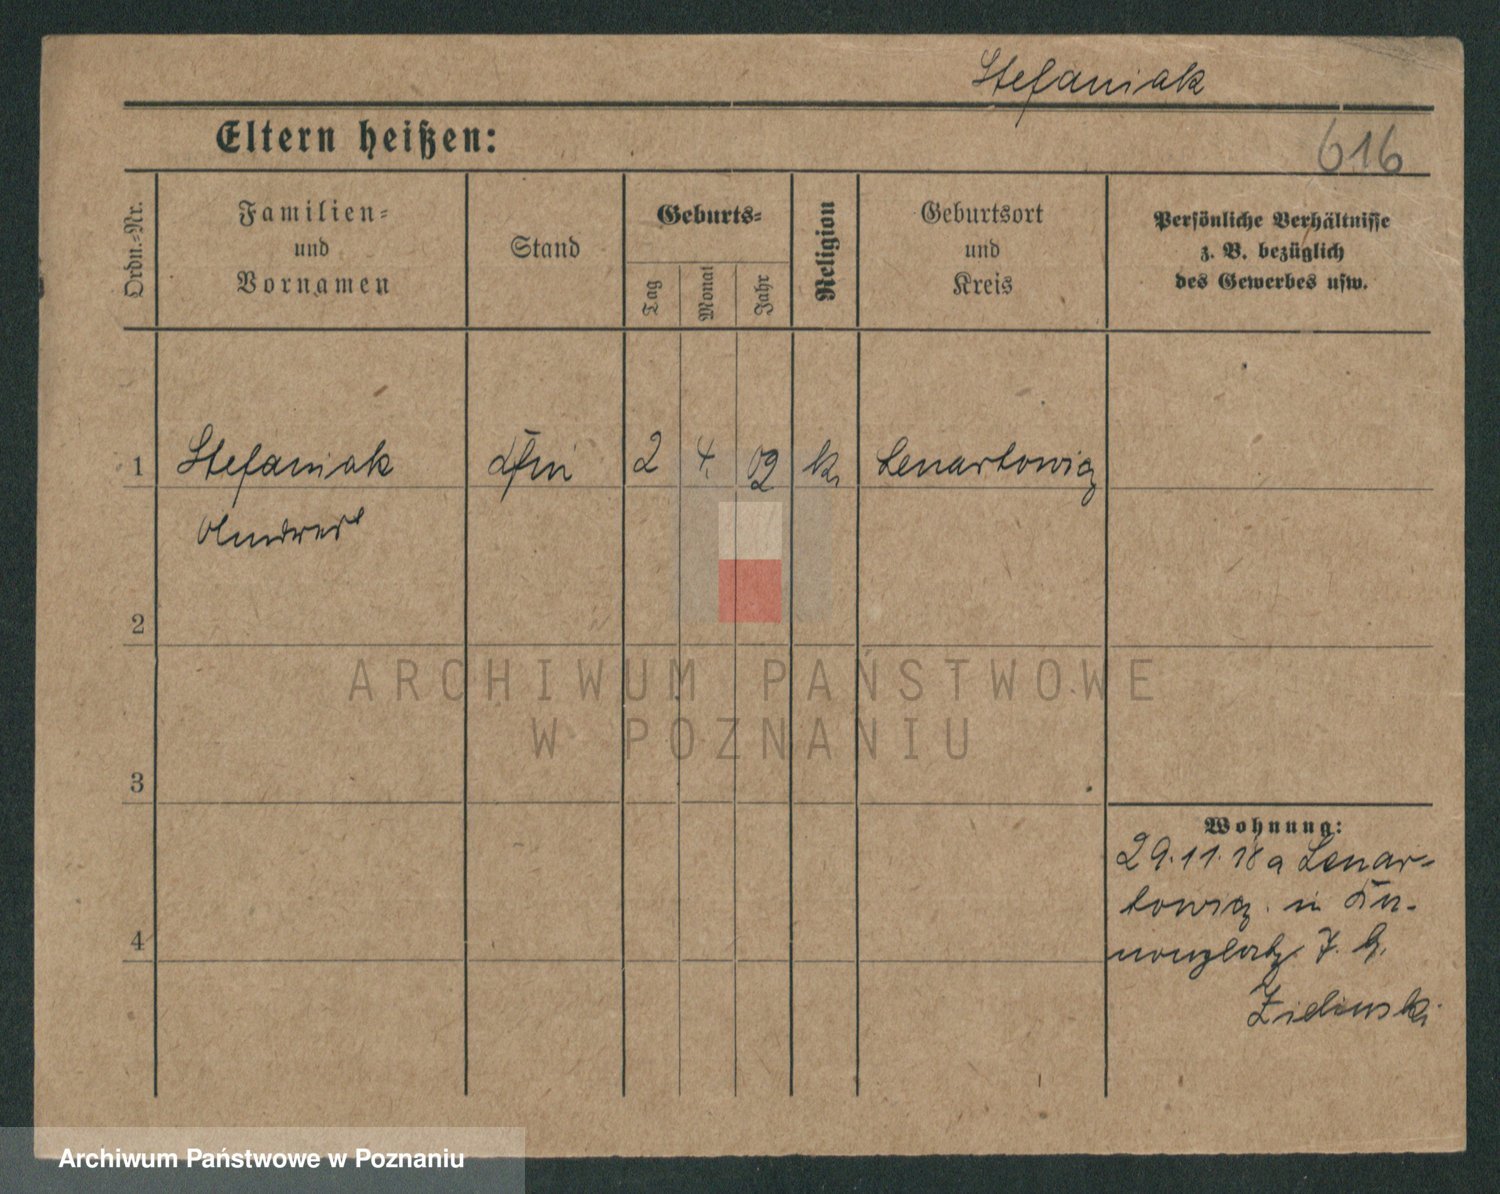 Stefaniak
Eltern heißen:
616
Ordn.=Nr.
Familien=
und
Vornamen
Stand
Geburts=
Tag
Monat
Jahr
Religion
Geburtsort
und
Kreis
Persönliche Verhältnisse
z. B. bezüglich
des Gewerbes usw.
1
Stefaniak
2
4.
02
k.
Lenartowiz
2
3
4
Wohnung:
29.11.18 a Lenar=
towiz. in
J. b.
Zielinski
ARCHIWUM PAŃSTWOWE
W POZNANIU
Archiwum Państwowe w Poznaniu